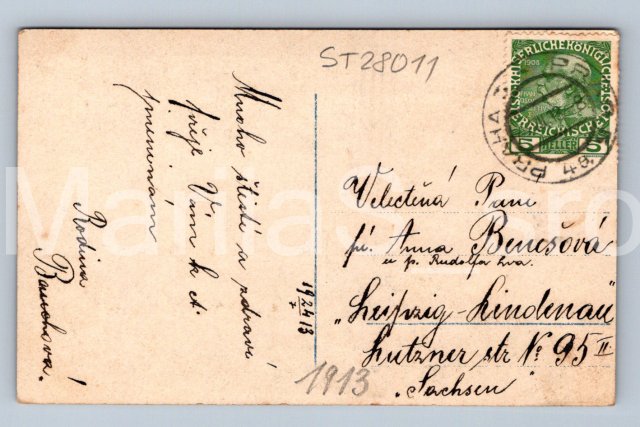 ST28011
Mnoho štěstí a zdraví
přeje Vám k sv.
Rodina
KAISERLICHE KÖNIGLICHE
1908
ÖSTERREICHISCHE
5 HELLER 5
PRAHA
Velectěná Paní
pí. Anna Benešová
u p. Rudolfa Lva.
"Leipzig-Lindenau"
Lutzner str No 95 II
"Sachsen"
19 24/7 13
1913